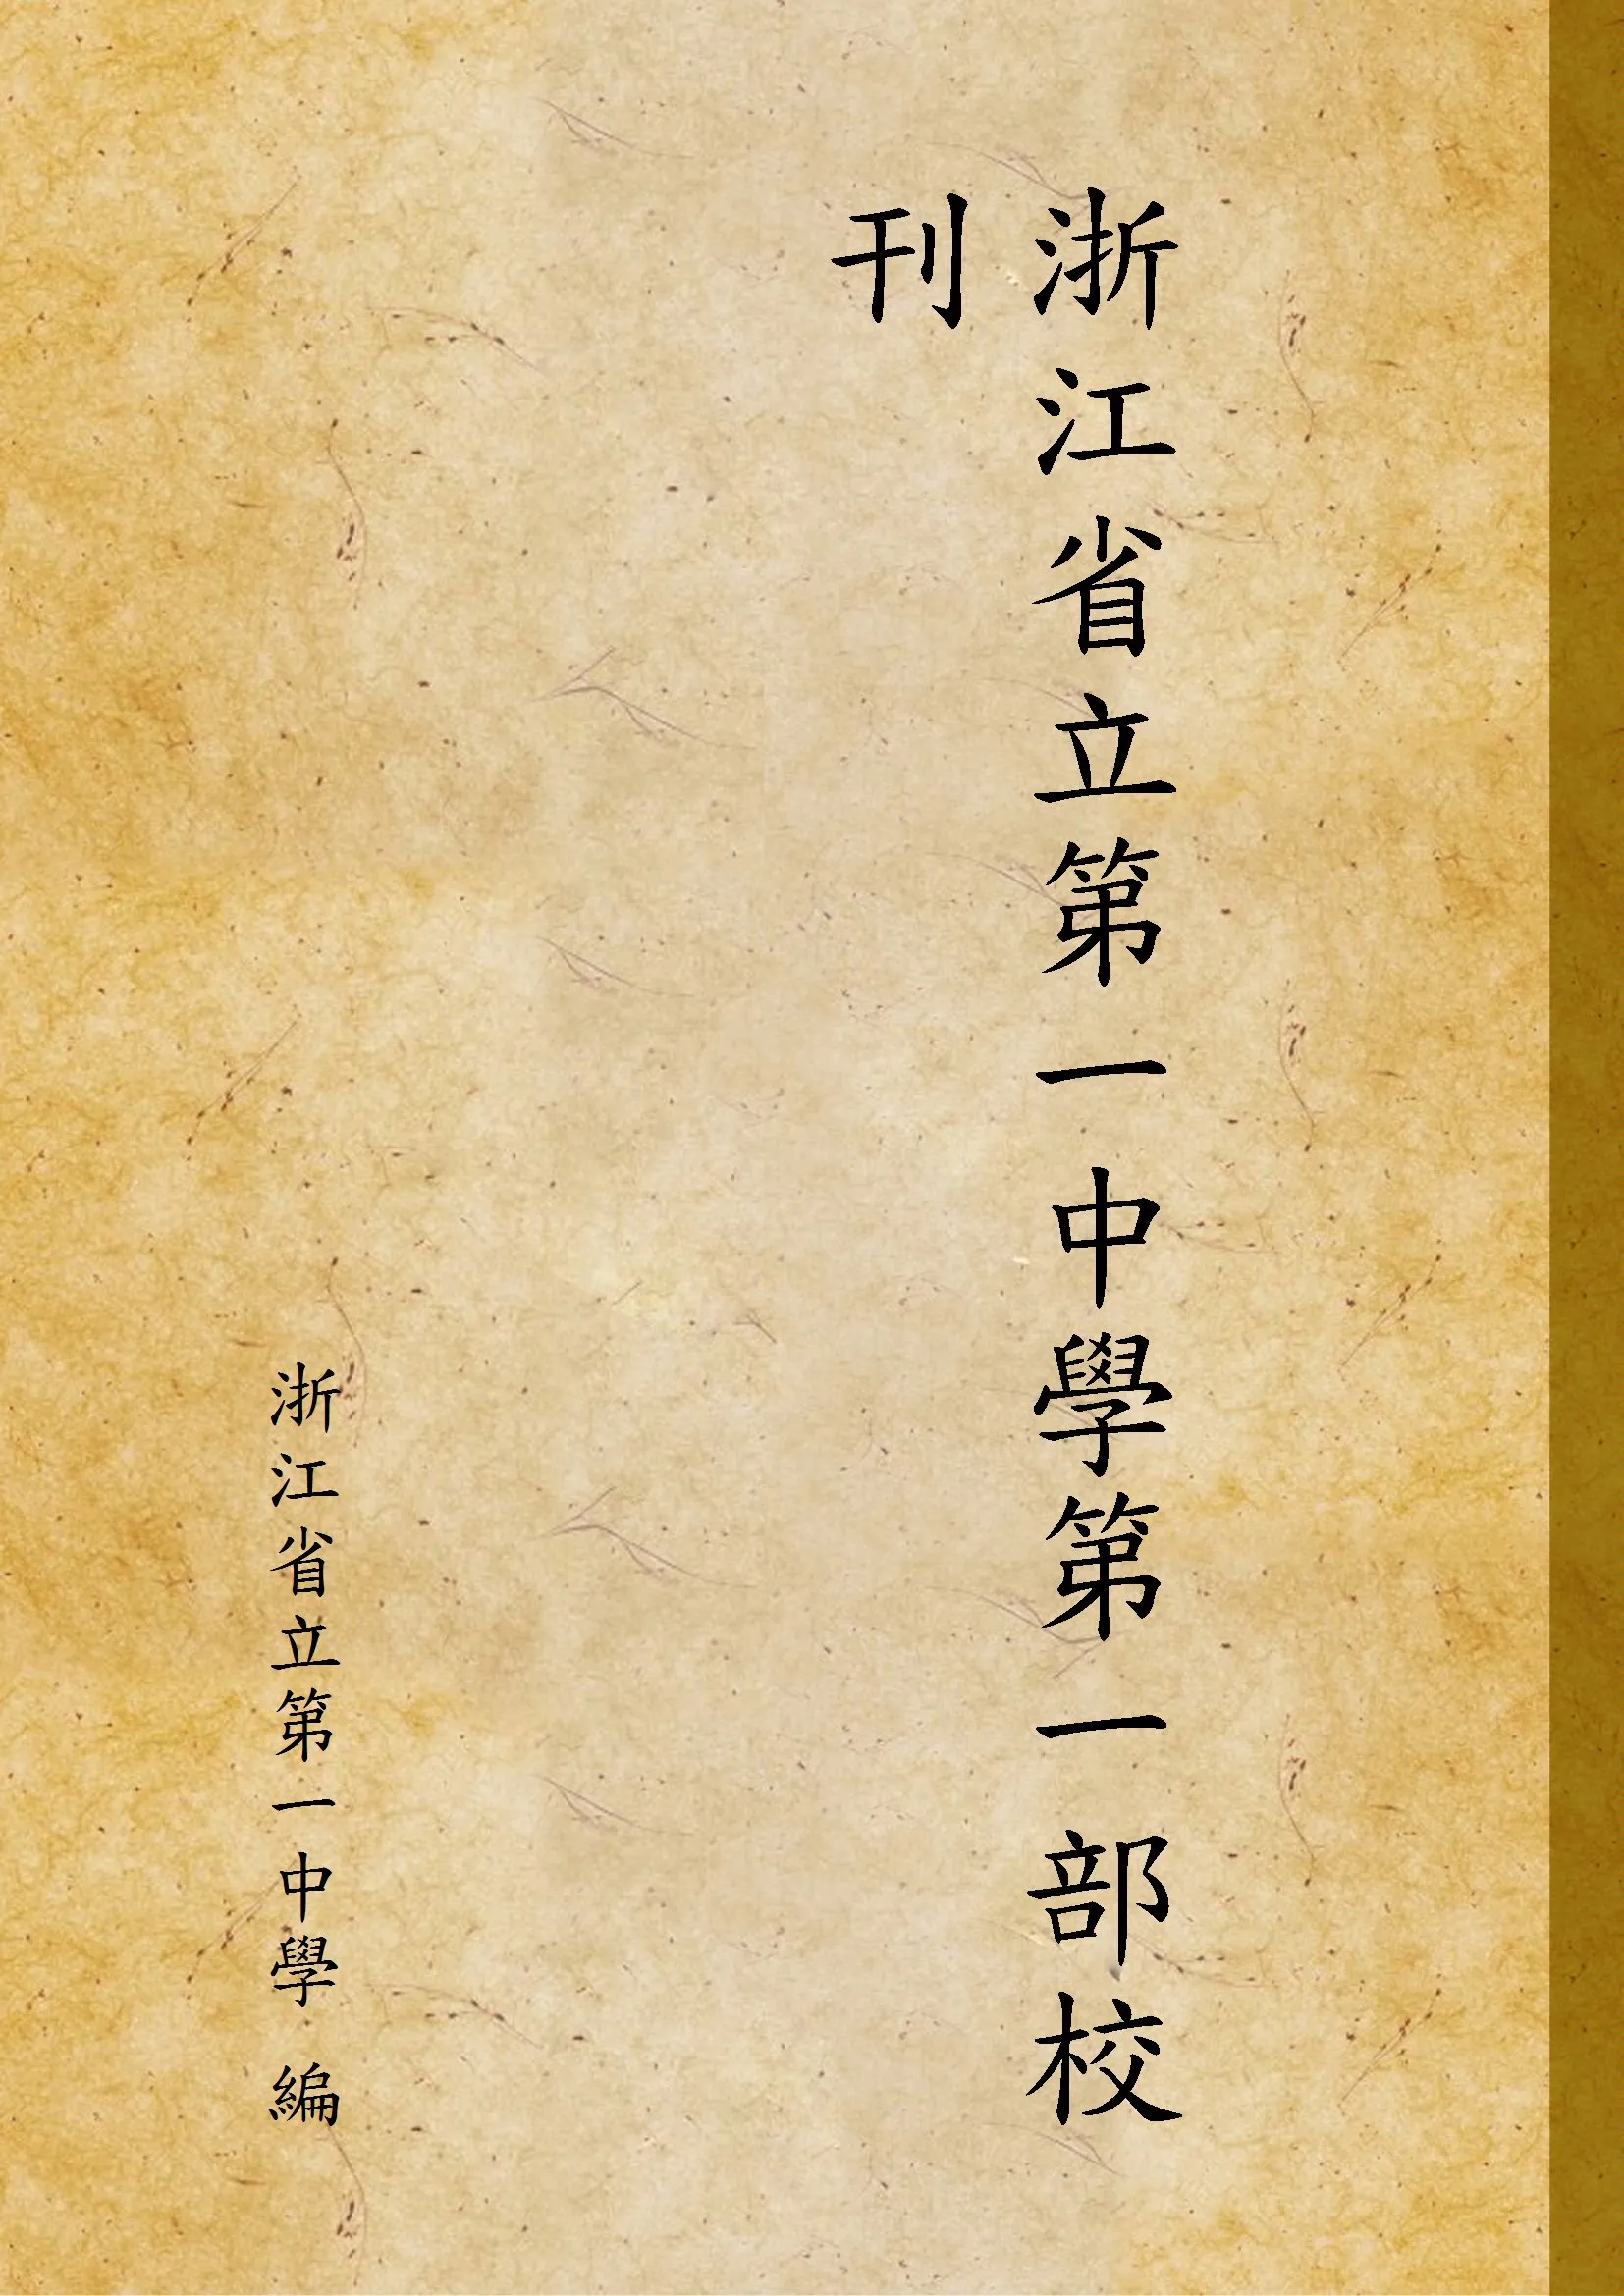 浙江省立第一中學第一部校
刊
浙江省立第一中學 編